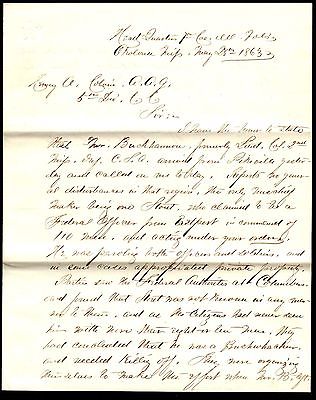 Head Quarters 1st Co. Ill. Vols.
Okolona Miss. May 28th 1863
Henry A. Colvin A.A.G.
5th Div.
Sir:
I have the honor to state
that Mr. Buckhannon, formerly Lieut. Col. 2nd
Miss. C.S.A. arrived from Pikeville yester-
day and called on me today. Reports no gener-
al disturbances in that region, the only mischief
maker being one Stout, who claimed to be a
Federal Officer from Eastport in command of
110 men, and acting under your orders.
He was paroling both officers and soldiers, and
in some cases appropriated private property.
Parties saw the Federal Authorities at Columbus
and found that Stout was not known in any man-
ner to them, and as the citizens had never seen
him with more than eight or ten men, they
had concluded that he was a Bushwhacker,
and needed killing off. They were organizing
themselves to make the effort when Mr. B. left.